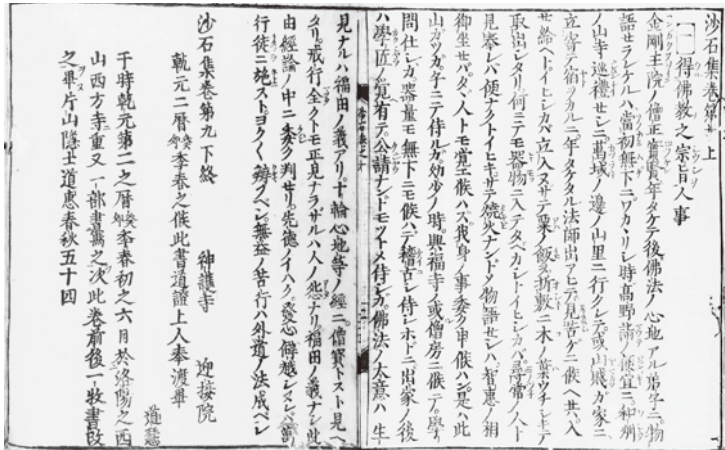 沙石集巻第十上
一得佛教之宗旨人事
金剛王院ノ僧正實賢年タケテ後佛法ノ心地アル弟子ニ物
語セラレケルハ當初無下ニワカヽリシ時高野詣ノ便宜ニ和州
ノ山寺巡禮セシニ葛城ノ邊ノ山里ニ行クレテ或山賤カ家ニ
立寄テ宿ヲカルニ年タケタル法師出アヒテ見苦ケニ候ヘ
取出シタリ何ニテモ器物ニ入テタベカシトイヒシカバ尋常ノ人ト
見奉レバ便ナクトイヒキサテ焼火ナンドノ物語セシハ智恵ノ相
御坐セバタヾ人トモ覚エ候ハズ我身ノ事委ク申候ハン是ハ此
山ガツガ子ニテ侍ルガ幼少ノ時興福寺ノ或僧房ニ候テ學
問仕シカ器量モ無下ニモ候ハデ稽古シ侍シホドニ出家ノ後
ハ學匠ノ覚有テ公請ナンドモツトメ侍シガ佛法ノ大意ハ生
見ナルハ福田ノ義アリ十輪心地等ノ經ニ僧寶トスト見ヘ
タリ戒行全クトモ正見ナラザルハ人ノ怨ナリ福田ノ義ナシ此
由經論ノ中ニ委ク判セリ先徳ノイハク發心僻越シヌレバ萬
行徒ニ施ストヨク〱辨フベシ無益ノ苦行ハ外道ノ法成ベシ
沙石集巻第九下終
神護寺 迎接院
乾元二暦癸卯季春之候此書道證上人奉渡畢
道慧
于時乾元第二之暦癸卯季春初之六月於洛陽之西
山西方寺重又一部書寫之次此巻前後一牧書改
之畢片山隠士道惠春秋五十四